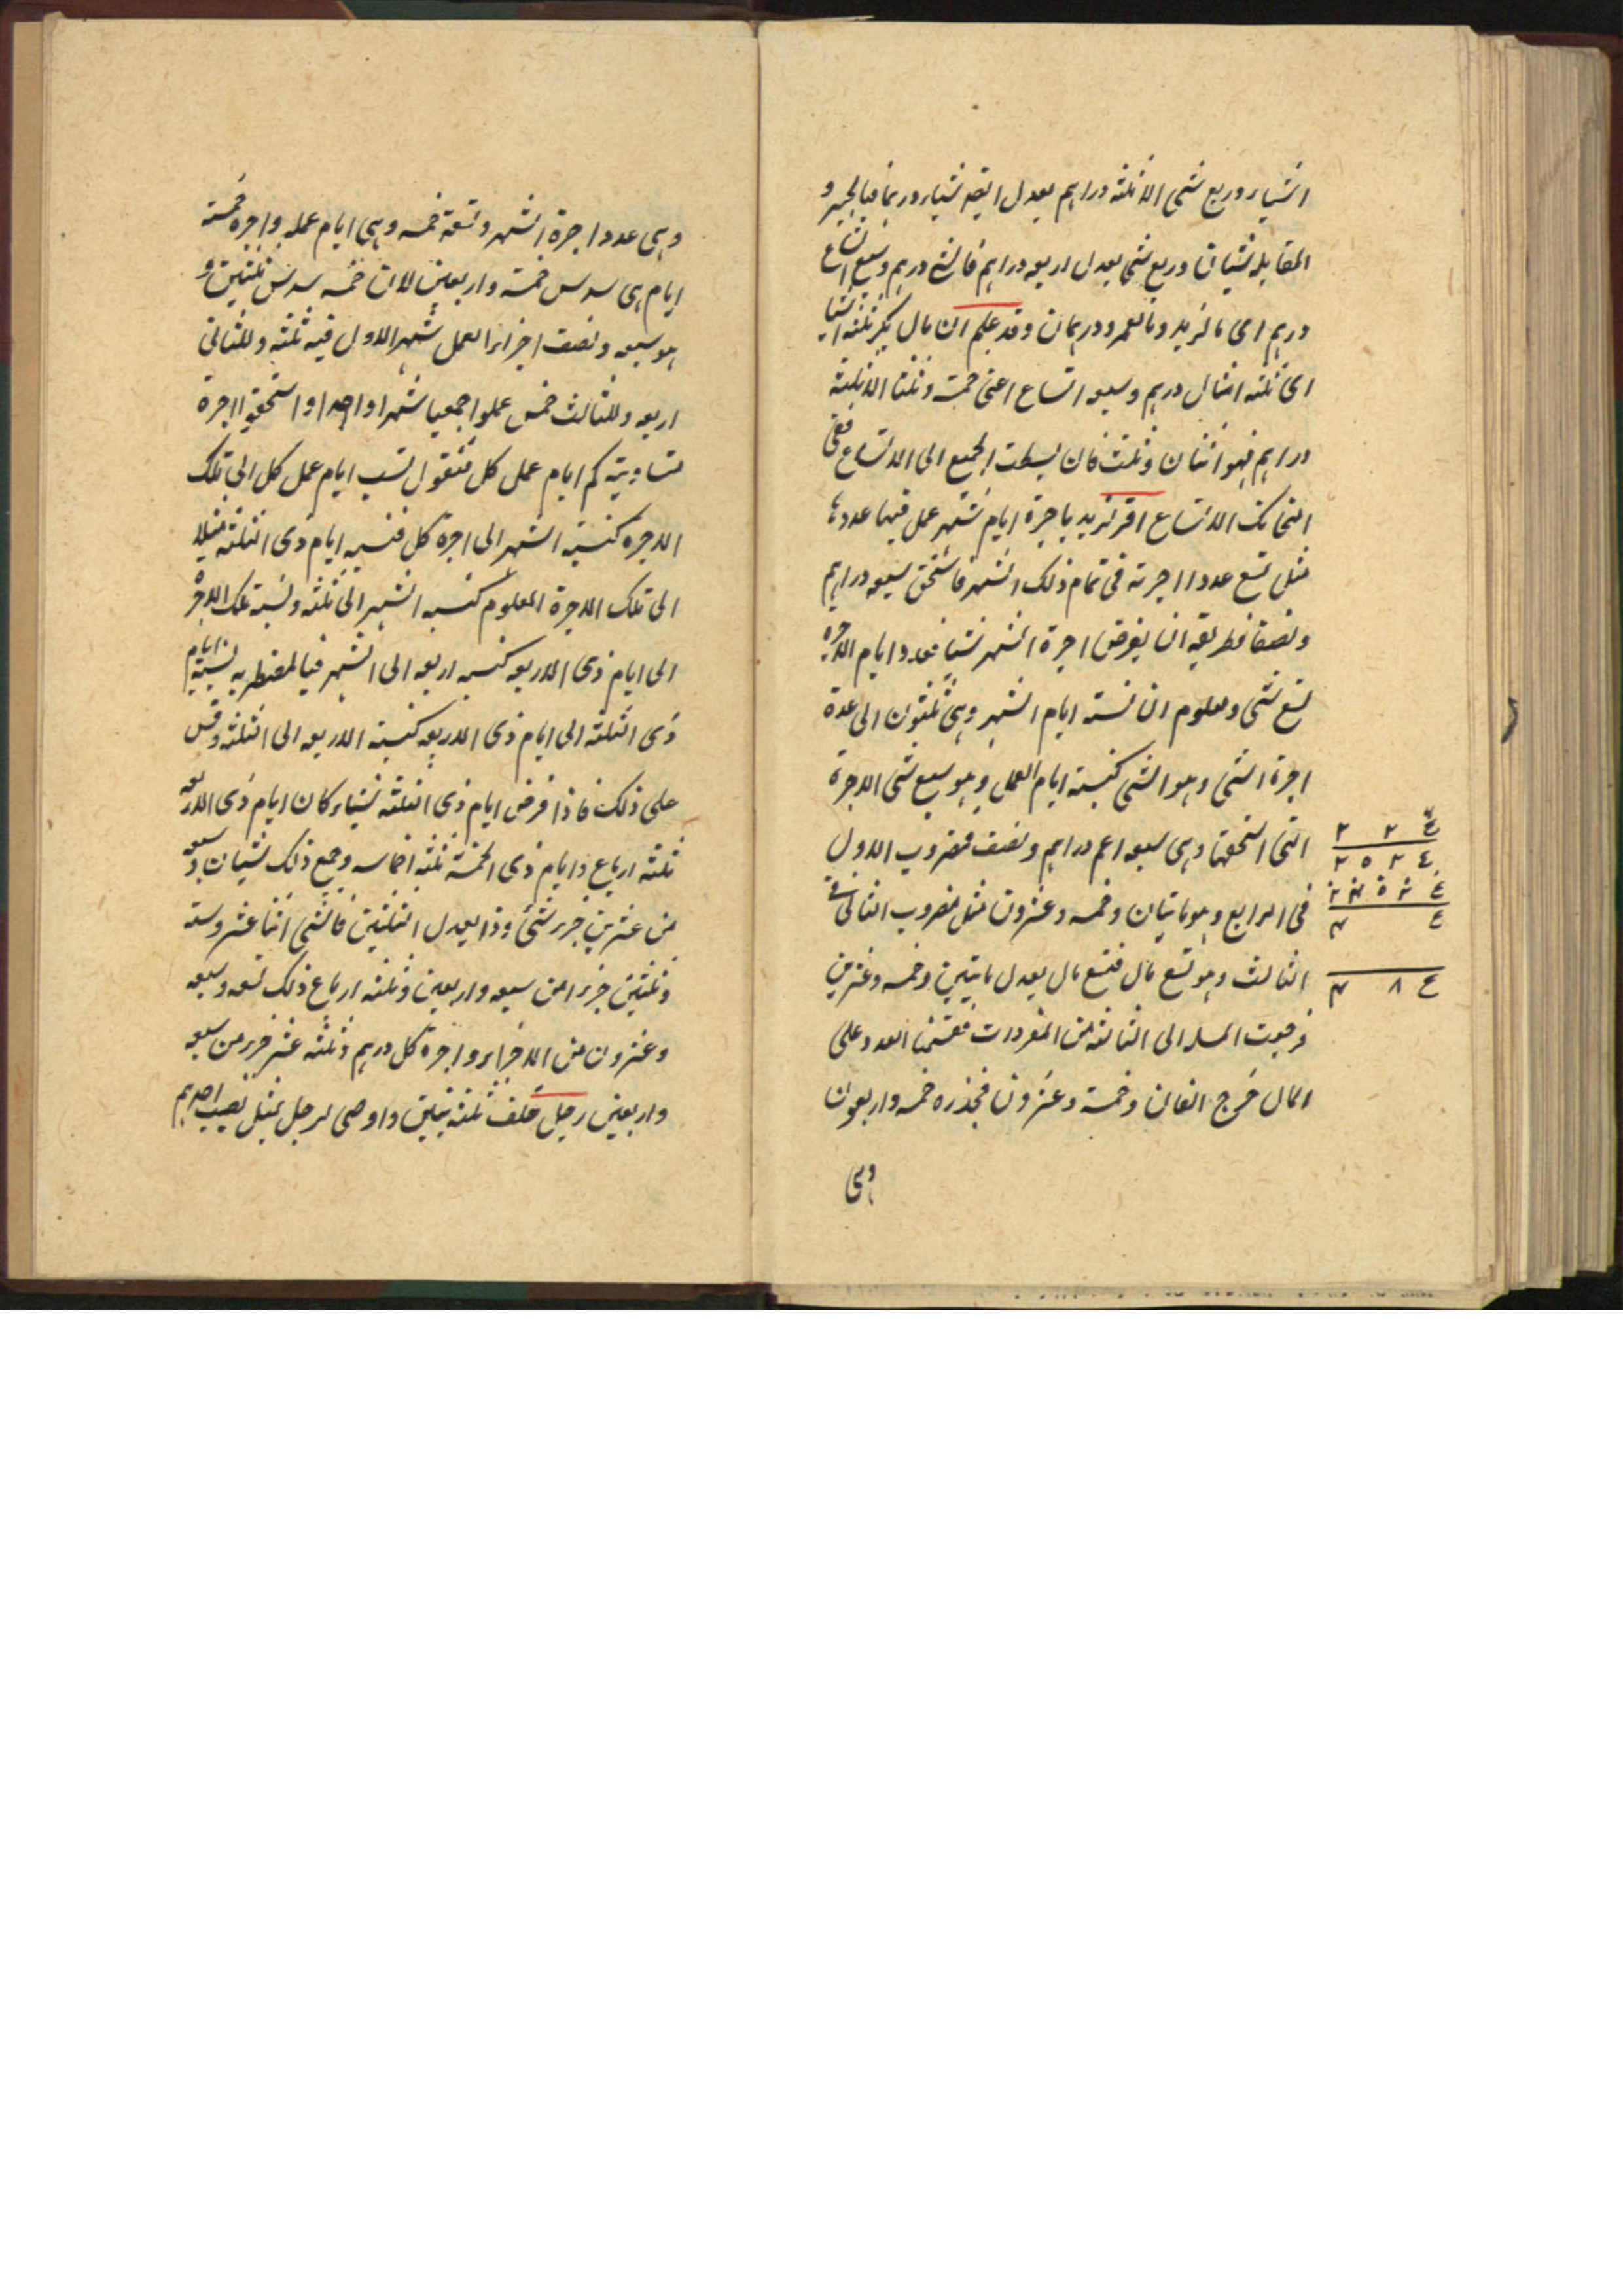 اشياء وربع شئ الا ثلثة دراهم يعدل ايضا شياء ودرهما فبالجبر و
المقابلة شيئان وربع شئ يعدل اربعة دراهم فالشئ درهم وسبع اتساع
درهم اى ما لزيد وما لعمرو درهمان وقد علم ان مال بكر ثلثة اشياء
اى ثلثة امثال درهم وسبعة اتساع اعنى خمسة وثلثا الا ثلثة
دراهم فهو اثنان وثلث فان بسطت الجميع الى الاتساع ففى
التحانك الاتساع اقر لزيد باجرة ايام شهر عمل فيها عددها
مثل تسع عدد اجرته فى تمام ذلك الشهر فاستحق سبعة دراهم
ونصفا فطريقه ان يفرض اجرة الشهر شيئا فعدد ايام الاجرة
تسع شئ ومعلوم ان نسبة ايام الشهر وهى ثلثون الى عدة
اجرة الشئ وهو الشئ كنسبة ايام العمل وهو سبع شئ الاجرة
التى استحقها وهى سبعة اعم دراهم ونصف فمضروب الاول
فى الرابع وهو مائتان وخمسة وعشرون مثل مضروب الثانى فى
الثالث وهو تسع مال فتسع مال يعدل مائتين وخمسة وعشرين
فرجعت المسلة الى الثالثة من المفردات فقسمنا العدد على
المال خرج الفان وخمسة وعشرون فجذره خمسة واربعون
وهى
٤ ٢ ٢
٤ ٢ ٥ ٢
٤ ٨
وهى عدد اجرة الشهر وتسعة خمسة وهى ايام عمله واجرة خمسة
ايام هى سدس خمسة واربعين لان خمسة سدس ثلثين و
هو سبعة ونصف اجراء العمل شهر الاول فيه ثلثة وللثانى
اربعة وللثالث خمس عملوا جمعيا شهرا واحدا واستحقوا اجرة
متساوية كم ايام عمل كل فنقول نسب ايام عمل كل الى تلك
الاجرة كنسبة الشهر الى اجرة كل فنسبة ايام ذى الثلثة مثلا
الى تلك الاجرة المعلوم كنسبة الشهر الى ثلثة ونسبة تلك الاجرة
الى ايام ذى الاربعة كنسبة اربعة الى الشهر فبالمضطربة نسبة ايام
ذى الثلثة الى ايام ذى الاربعة كنسبة الاربعة الى الثلثة وقس
على ذلك فاذا فرض ايام ذى الثلثة شياء كان ايام ذى الاربعة
ثلثة ارباع وايام ذى الخمسة ثلثة اخماسه وجمع ذلك شيئان وسبعة
من عشرين جزء شئ وذا يعدل الثلثين فالشئ اثنا عشر وستة
وثلثين جزءا من سبعة واربعين وثلثة ارباع ذلك تسعة وسبعة
وعشرون من الاجزاء واجرة كل درهم وثلثة عشر جزء من سبعة
واربعين رجل خلف ثلثة بنين واوصى لرجل بمثل نصيب احدهم